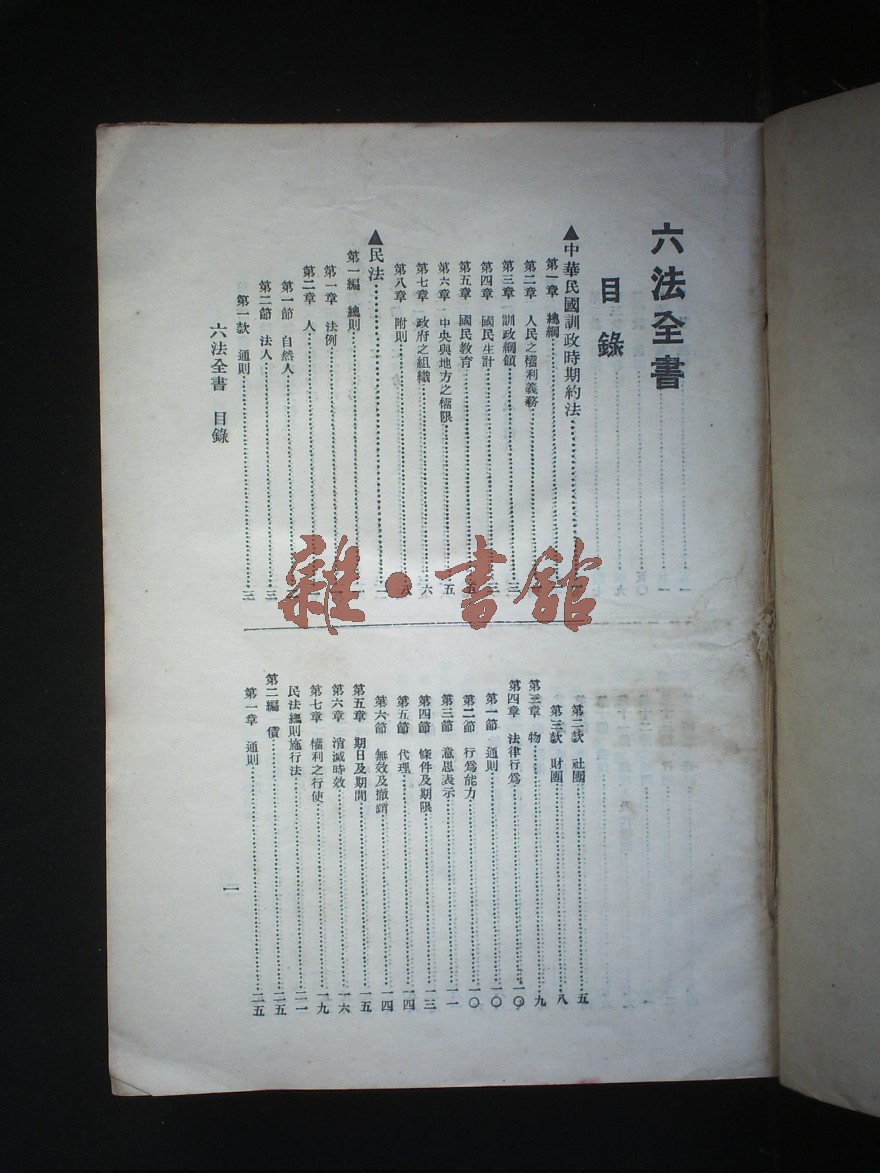 六法全書
目錄
▲中華民國訓政時期約法
第一章 總綱
第二章 人民之權利義務
第三章 訓政綱領……三
第四章 國民生計
第五章 國民教育
第六章 中央與地方之權限……五
第七章 政府之組織……六
第八章 附則……八
▲民法
第一編 總則
第一章 法例
第二章 人
第一節 自然人
第二節 法人……三
第一款 通則……三
第二款 社團……五
第三款 財團……八
第三章 物……九
第四章 法律行爲……一〇
第一節 通則……一〇
第二節 行爲能力……一〇
第三節 意思表示……一一
第四節 條件及期限……一三
第五節 代理……一四
第六節 無效及撤銷……一四
第五章 期日及期間……一五
第六章 消滅時效……一六
第七章 權利之行使……一九
民法總則施行法……二一
第二編 債……二五
第一章 通則……二五
六法全書 目錄
一
雜·書館